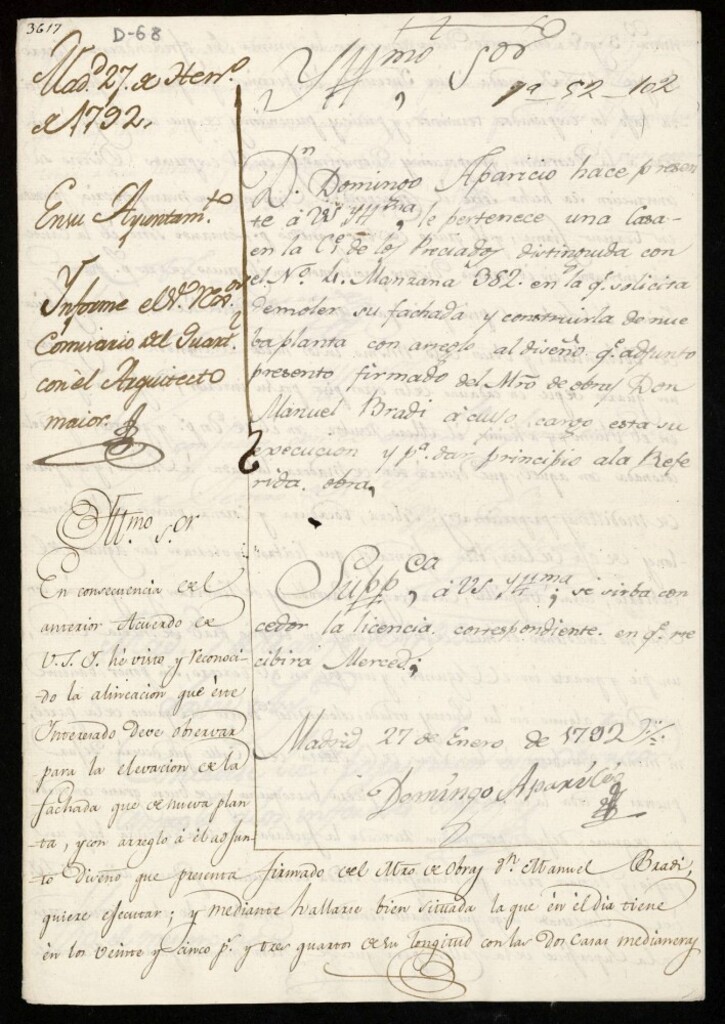 3617
D-68
Mad.d 27. de Hen.o
de 1792,
En su Ayuntam.to
Informe el S.r
Comisario del Quart.l
con el Arquitecto
maior.
Yllmo Sor
1a - 52 - 102
D.n Domingo Aparicio hace presen
te á VS Yllma, le pertenece una Casa
en la C.e de los Preciados distinguida con
el N.o 4. Manzana 382. en la q.e solicita
demoler su fachada y construirla de nue
ba planta con arreglo al diseño q.e adjunto
presento firmado del Mro de obras Don
Manuel Bradi á cuio cargo esta su
execucion y p.a dar principio a la Refe
rida obra,
Supp.ca á VS Yllma; se sirba con
ceder la licencia correspondiente. en q.e re
cibirá Merced;
Madrid 27 de Enero de 1792
Domingo Aparicio
Yllmo. S.or
En consecuencia del
anterior Acuerdo de
V.S.I. hé visto y reconoci
do la alineacion que este
Interesado deve observar
para la elevacion de la
fachada que de nueva plan
ta, y con arreglo á el adjun
to Diseño que presenta firmado del Mro de Obras D.n Manuel Bradi,
quiere ejecutar; y mediante hallarse bien situada la que en el dia tiene
en los veinte y cinco p.s y tres quartos de su longitud con las dos casas medianeras